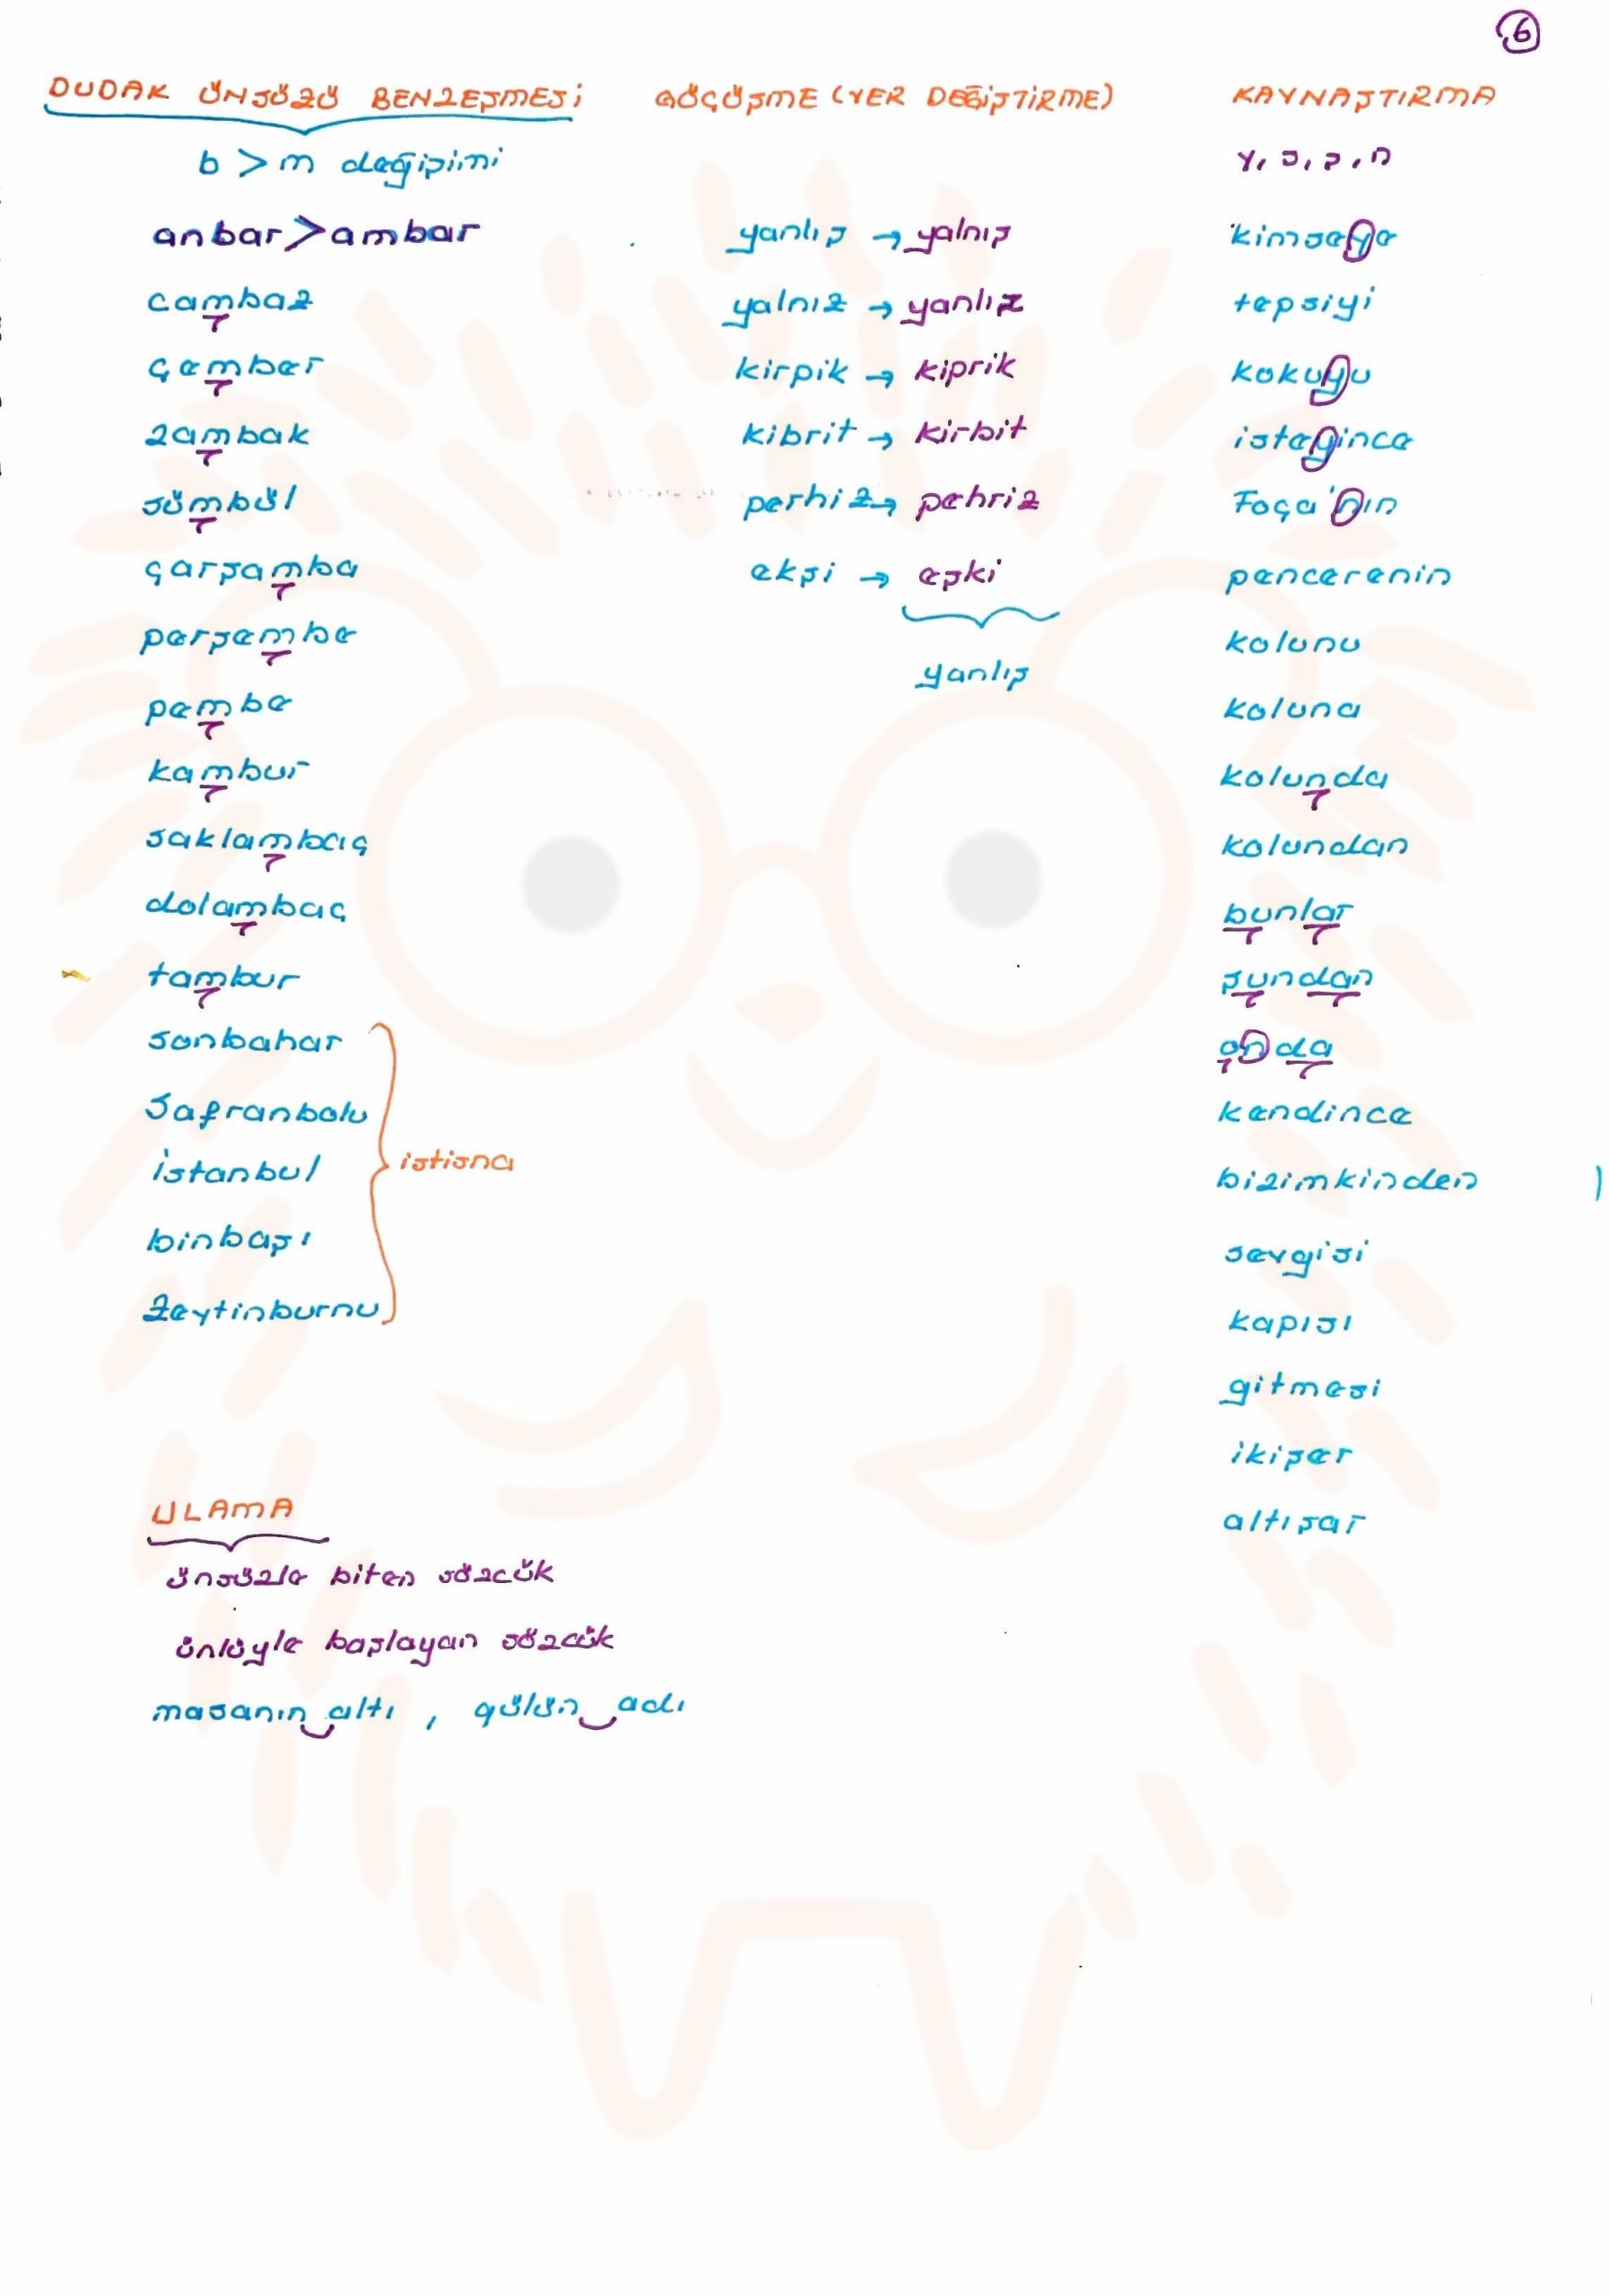 6
DUDAK ÜNSÜZÜ BENZEŞMESİ
b > m değişimi
anbar > ambar
cambaz
çember
zambak
sümbül
çarşamba
perşembe
pembe
kambur
saklambaç
dolambaç
tambur
sonbahar
Safranbolu
İstanbul
binbaşı
Zeytinburnu
istisna
ULAMA
ünsüzle biten sözcük
ünlüyle başlayan sözcük
masanın altı , gülün adı
GÖÇÜŞME (YER DEĞİŞTİRME)
yanlış → yalnış
yalnız → yanlız
kirpik → kiprik
kibrit → kirbit
perhiz → pehriz
ekşi → eşki
yanlış
KAYNAŞTIRMA
y, s, ş, n
kimseye
tepsiyi
kokuyu
isteyince
Foça'nın
pencerenin
kolunu
koluna
kolunda
kolundan
bunlar
şundan
onda
kendince
bizimkinden
sevgisi
kapısı
gitmesi
ikişer
altışar